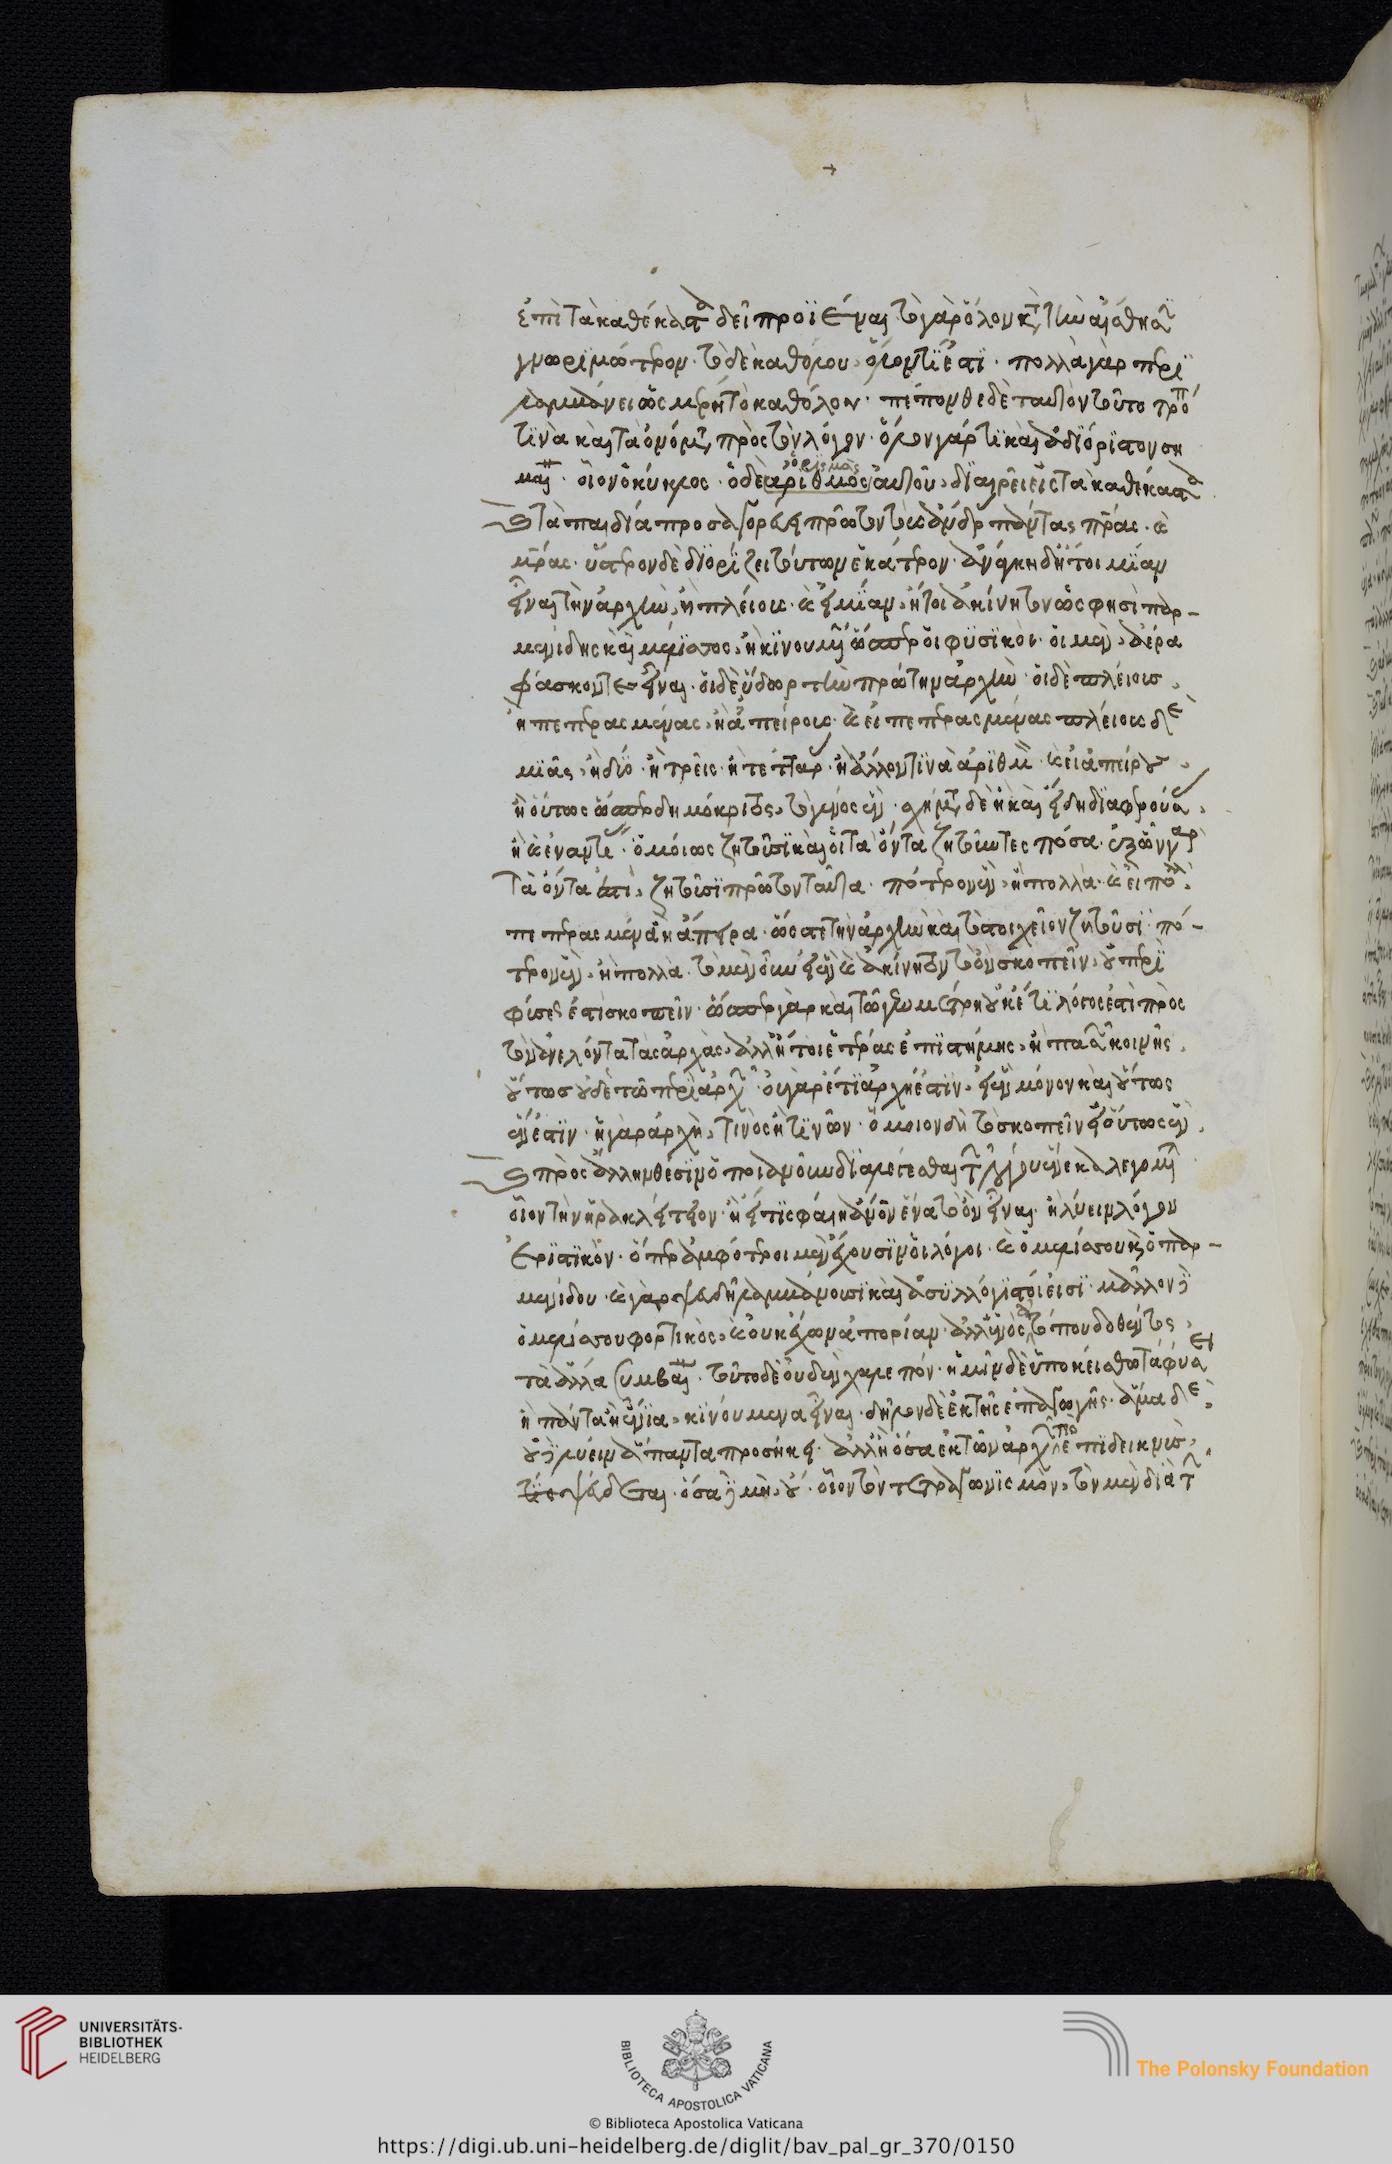 ἐπὶ τὰ καθέκαστα δεῖ προϊέναι· τὸ γὰρ ὅλον κατὰ τὴν αἴσθησιν
γνωριμώτερον· τὸ δὲ καθόλου, ὅλον τί ἐστι· πολλὰ γὰρ περι
λαμβάνει ὡς μέρη τὸ καθόλου· πέπονθε δὲ ταυτὸν τοῦτο τρόπον
τινὰ καὶ τὰ ὀνόματα πρὸς τὸν λόγον· ὅλον γάρ τι καὶ ἀδιόριστον ση
μαίνει· οἷον ὁ κύκλος· ὁ δὲ ἀριθμὸς ὁρισμὸς αὐτοῦ, διαιρεῖ εἰς τὰ καθέκαστα
καὶ τὰ παιδία προσαγορεύει πρῶτον τοὺς ἄνδρας πάντας πατέρας· καὶ
μητέρας· ὕστερον δὲ διορίζει τούτων ἑκάτερον· ἀνάγκη δὴ ἤτοι μίαν
εἶναι τὴν ἀρχὴν, ἢ πλείους· καὶ εἰ μίαν, ἤτοι ἀκίνητον ὥς φησι παρ-
μενίδης καὶ μέλισσος, ἢ κινουμένην ὥσπερ οἱ φυσικοί· οἱ μὲν, ἀέρα
φάσκοντες εἶναι· οἱ δὲ ὕδωρ τὴν πρώτην ἀρχήν· οἱ δὲ πλείους,
ἢ πεπερασμένας, ἢ ἀπείρους· καὶ εἰ πεπερασμένας πλείους δὲ
μιᾶς, ἢ δύο· ἢ τρεῖς· ἢ τέτταρας· ἢ ἄλλον τινὰ ἀριθμόν· καὶ εἰ ἀπείρους,
ἢ οὕτως ὥσπερ δημόκριτος, τὸ γένος ἓν· σχήματι δὲ ἢ καὶ εἴδη διαφερούσας,
ἢ καὶ ἐναντίας· ὁμοίως ζητοῦσι καὶ οἱ τὰ ὄντα ζητοῦντες πόσα· ἐξ ὧν γὰρ
τὰ ὄντα ἐστὶ, ζητοῦσι πρῶτον ταῦτα· πότερον ἓν, ἢ πολλά· καὶ εἰ πολλὰ,
πεπερασμένα ἢ ἄπειρα· ὥστε τὴν ἀρχὴν καὶ τὸ στοιχεῖον ζητοῦσι πό-
τερον ἓν, ἢ πολλά· τὸ μὲν οὖν εἰ ἓν καὶ ἀκίνητον τὸ ὂν σκοπεῖν, οὐ περὶ
φύσεώς ἐστι σκοπεῖν· ὥσπερ γὰρ καὶ τῷ γεωμέτρῃ οὐκέτι λόγος ἐστὶ πρὸς
τὸν ἀνελόντα τὰς ἀρχὰς, ἀλλ' ἤτοι ἑτέρας ἐπιστήμης, ἢ πασῶν κοινῆς,
οὕτως οὐδὲ τῷ περὶ ἀρχῶν· οὐ γὰρ ἔτι ἀρχή ἐστιν, εἰ ἓν μόνον καὶ οὕτως
ἕν ἐστιν· ἡ γὰρ ἀρχὴ, τινὸς ἢ τινῶν· ὅμοιον δὴ τὸ σκοπεῖν εἰ οὕτως ἓν,
καὶ πρὸς ἄλλην θέσιν ὁποιανοῦν διαλέγεσθαι τῶν λόγου ἕνεκα λεγομένων
οἷον τὴν ἡρακλείτειον· ἢ εἴ τις φαίη ἄνθρωπον ἕνα τὸ ὂν εἶναι· ἢ λύειν λόγον
ἐριστικόν· ὅπερ ἀμφότεροι μὲν ἔχουσιν οἱ λόγοι· καὶ ὁ μελίσσου καὶ ὁ παρ-
μενίδου· καὶ γὰρ ψευδῆ λαμβάνουσι καὶ ἀσυλλόγιστοί εἰσι· μᾶλλον δ'
ὁ μελίσσου φορτικὸς, καὶ οὐκ ἔχων ἀπορίαν· ἀλλ' ἑνὸς ἀτόπου δοθέντος,
τὰ ἄλλα συμβαίνει· τοῦτο δὲ οὐδὲν χαλεπόν· ἡμῖν δὲ ὑποκείσθω τὰ φύσει
ἢ πάντα ἢ ἔνια, κινούμενα εἶναι· δῆλον δὲ ἐκ τῆς ἐπαγωγῆς· ἅμα δὲ,
οὐδὲ λύειν ἅπαντα προσήκει· ἀλλ' ἢ ὅσα ἐκ τῶν ἀρχῶν ἐπιδεικνύς,
τις ψεύδεται· ὅσα δὲ μὴ, οὔ· οἷον τὸν τετραγωνισμὸν, τὸν μὲν διὰ τῶν
UNIVERSITÄTS-
BIBLIOTHEK
HEIDELBERG
BIBLIOTECA APOSTOLICA VATICANA
The Polonsky Foundation
© Biblioteca Apostolica Vaticana
https://digi.ub.uni-heidelberg.de/diglit/bav_pal_gr_370/0150